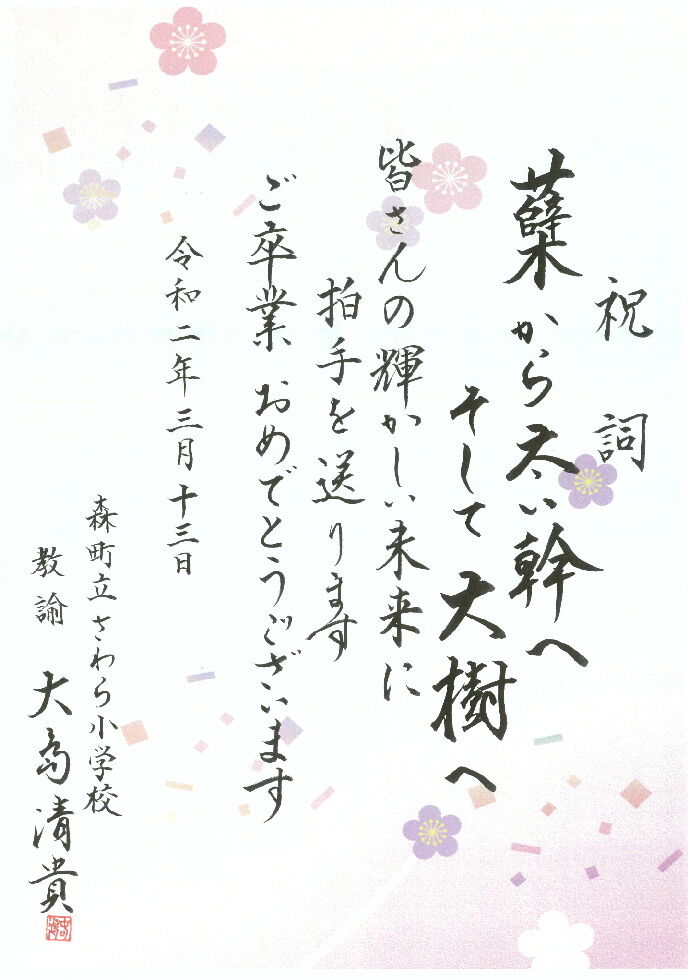 祝詞
蘖から太い幹へ
そして大樹へ
皆さんの輝かしい未来に
拍手を送ります
ご卒業おめでとうございます
令和二年三月十三日
森町立さわら小学校
教諭 大島清貴